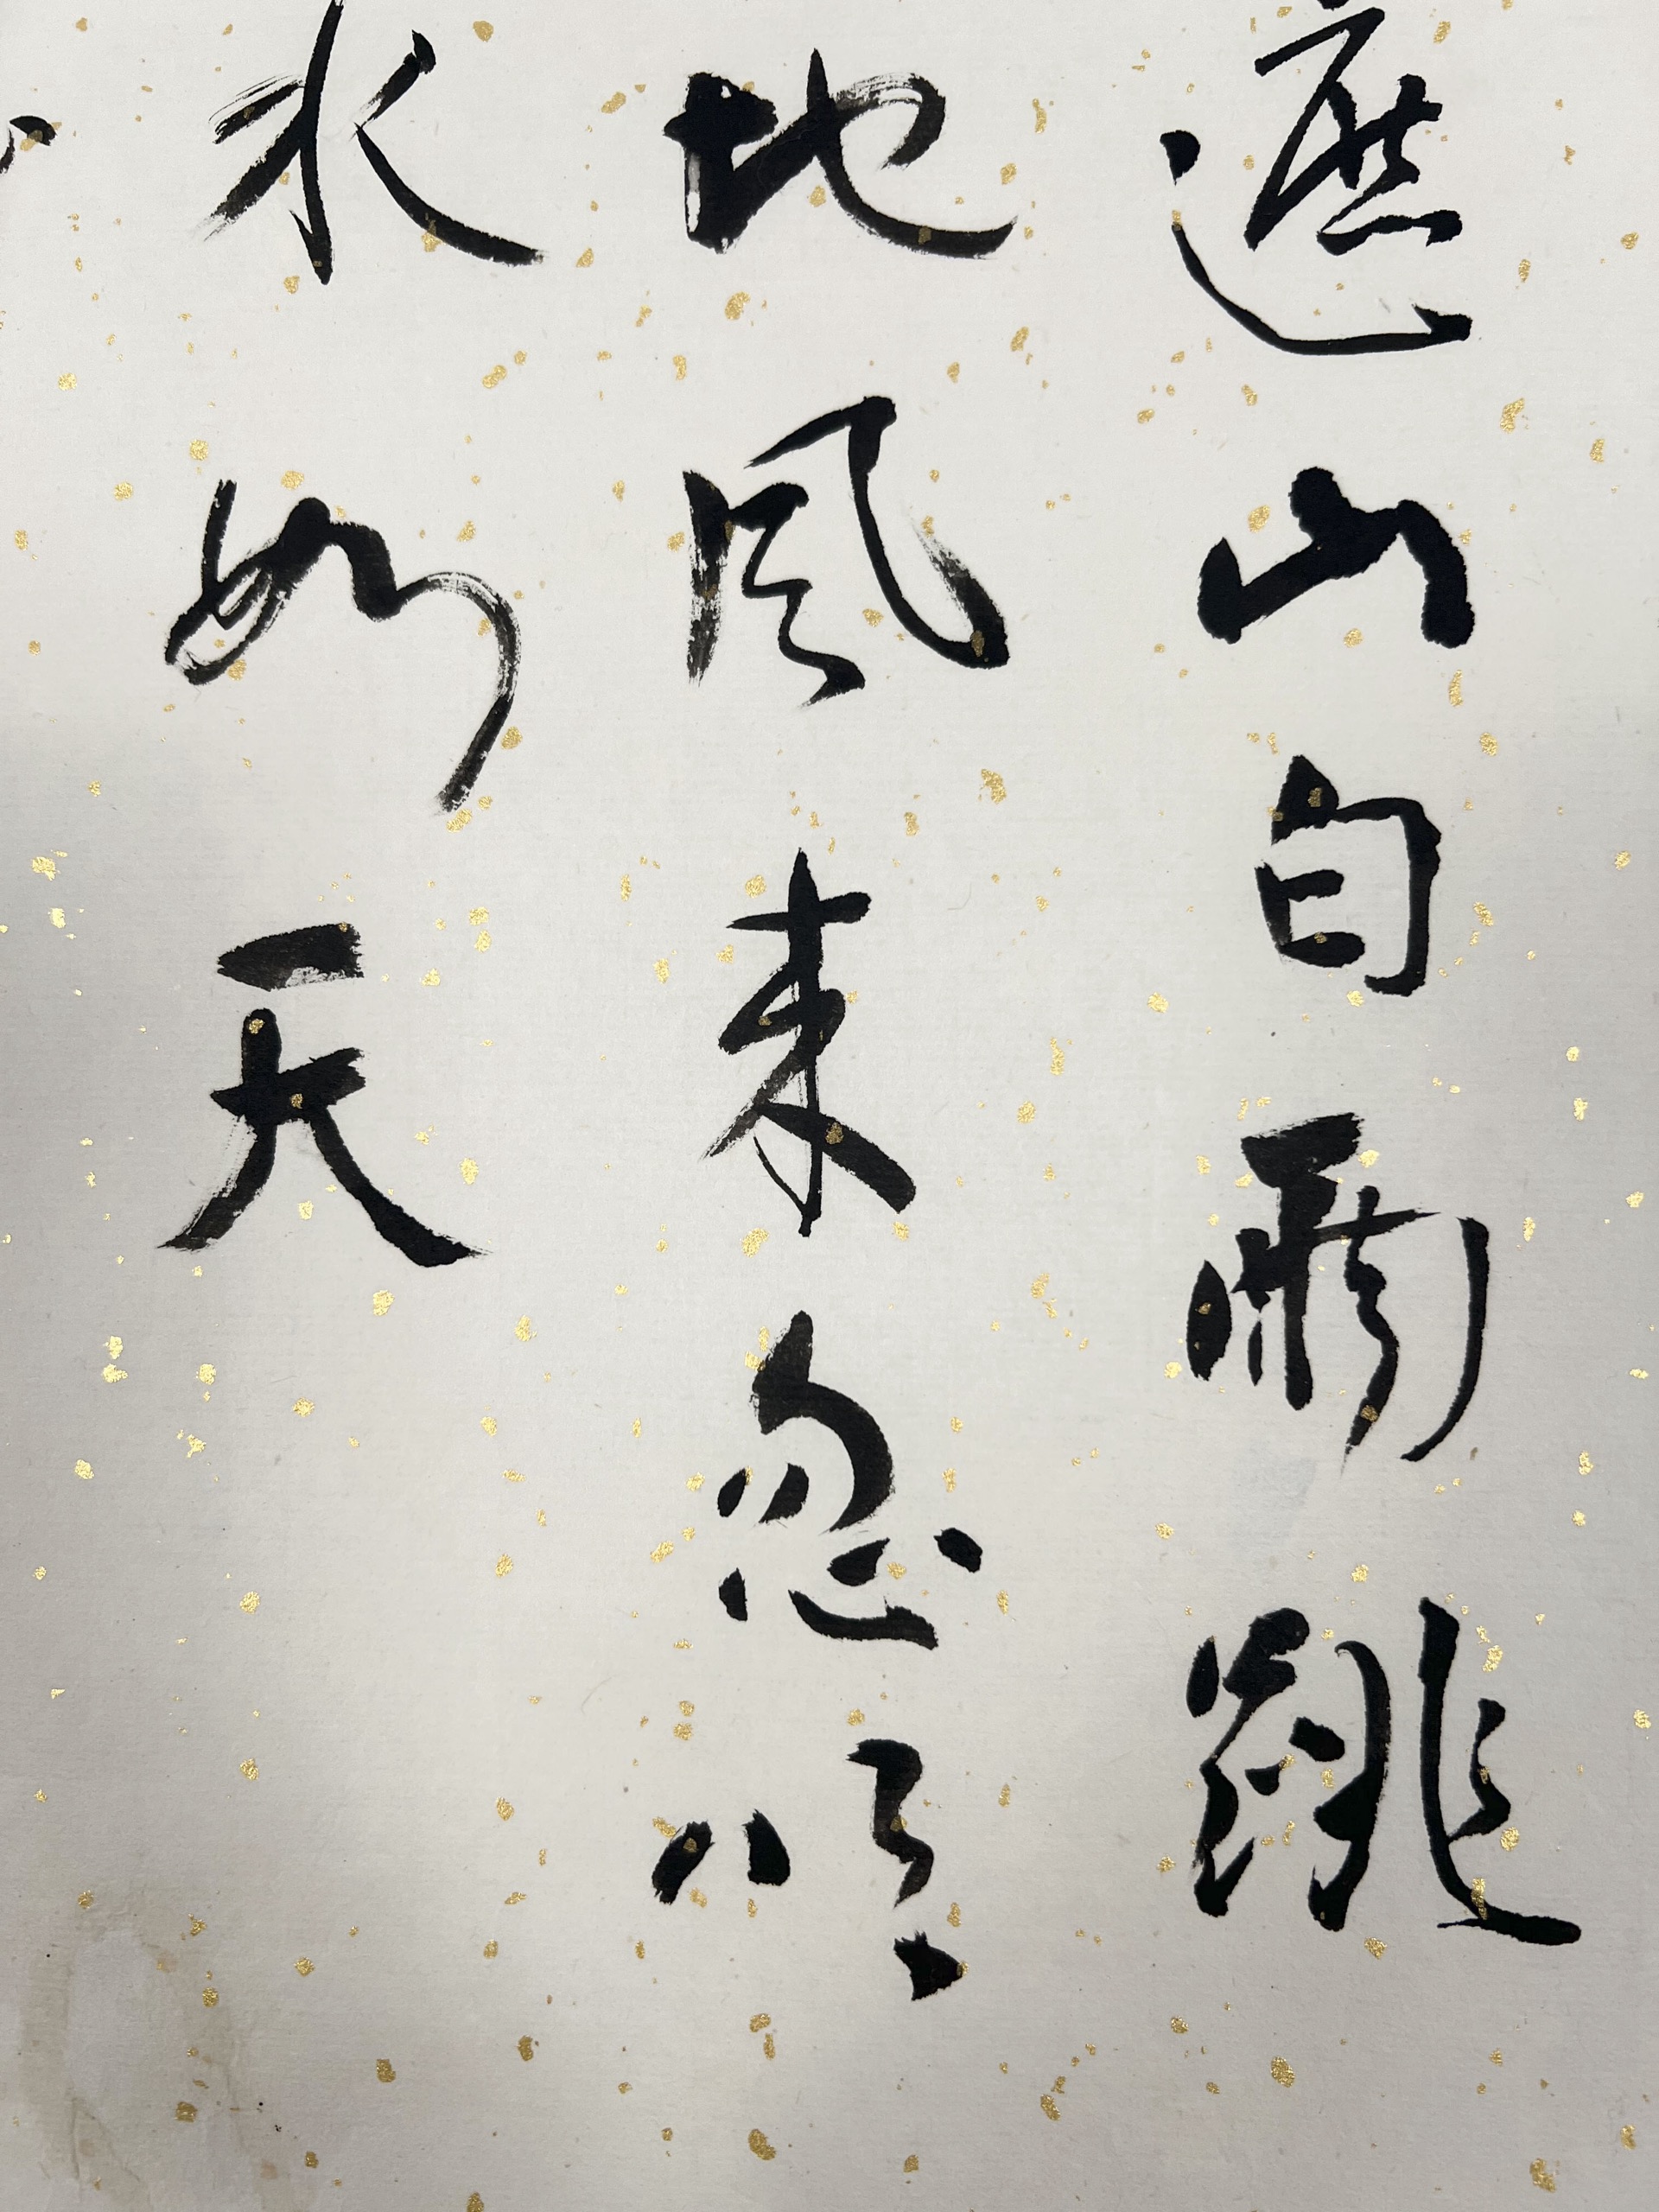 遮山白雨跳
地風来忽吹
水如天